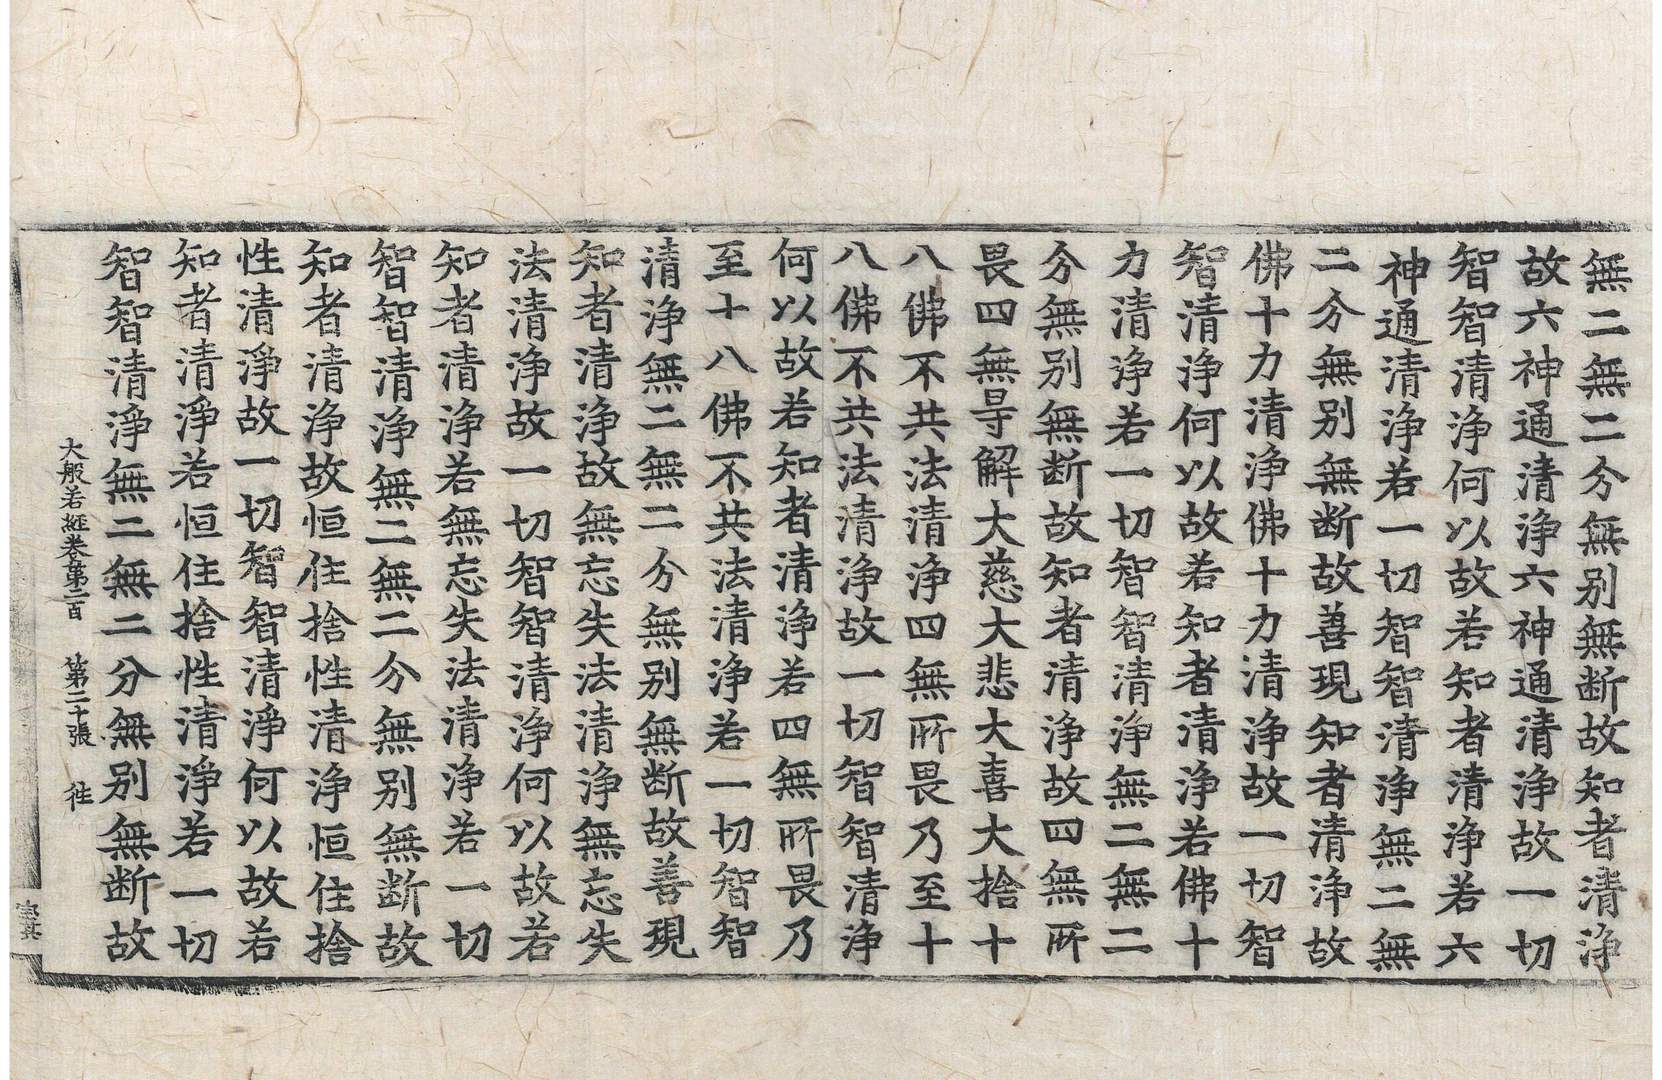 無二無二分無別無断故知者清浄
故六神通清浄六神通清浄故一切
智智清浄何以故若知者清浄若六
神通清浄若一切智智清浄無二無
二分無別無断故善現知者清浄故
佛十力清浄佛十力清浄故一切智
智清浄何以故若知者清浄若佛十
力清浄若一切智智清浄無二無二
分無別無断故知者清浄故四無所
畏四無导解大慈大悲大喜大捨十
八佛不共法清浄四無所畏乃至十
八佛不共法清浄故一切智智清浄
何以故若知者清浄若四無所畏乃
至十八佛不共法清浄若一切智智
清浄無二無二分無別無断故善現
知者清浄故無忘失法清浄無忘失
法清浄故一切智智清浄何以故若
知者清浄若無忘失法清浄若一切
智智清浄無二無二分無別無断故
知者清浄故恒住捨性清浄恒住捨
性清淨故一切智智清淨何以故若
知者清淨若恒住捨性清淨若一切
智智清淨無二無二分無別無断故
大般若経卷第二百 第二十張 徃